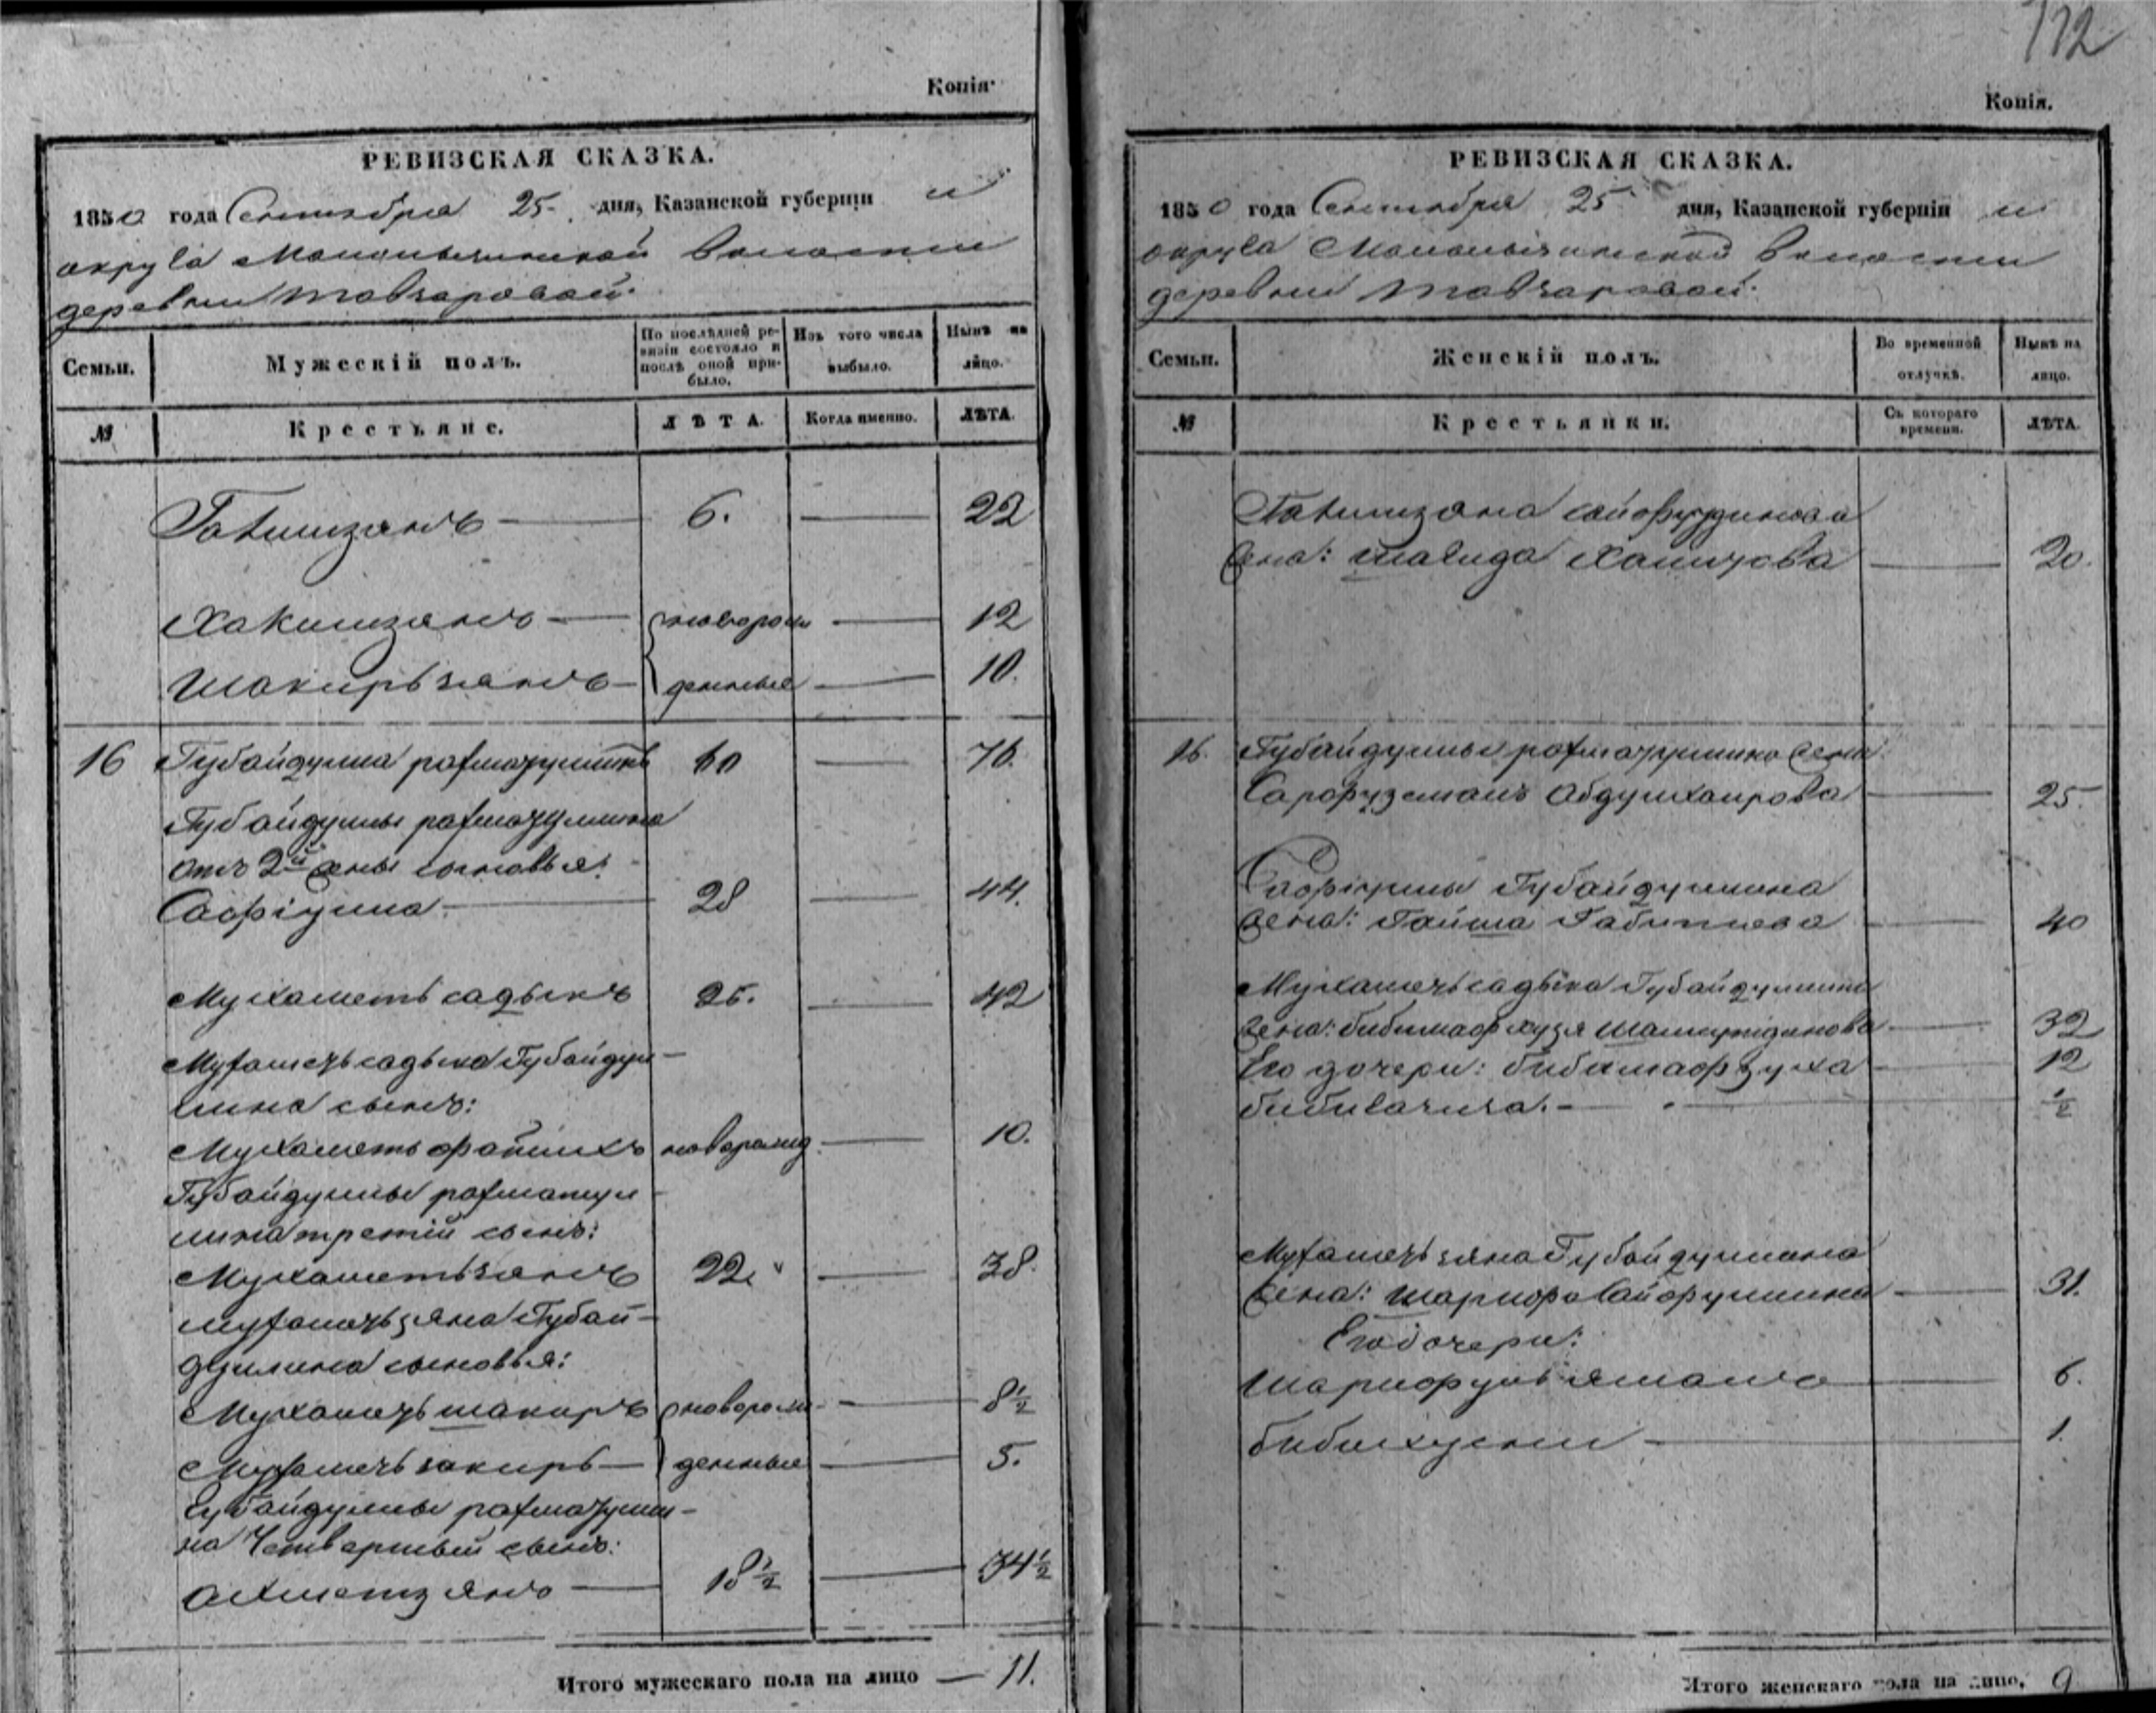 112
Копія.
РЕВИЗСКАЯ СКАЗКА.
1850 года Сентября 25 дня, Казанской губерніи и
округа волости
деревни
Семьи. Мужескій полъ. По послѣдней ревизіи состояло и послѣ оной прибыло. Изъ того числа выбыло. Нынѣ на лицо.
№ Крестьяне. ЛѢТА. Когда именно. ЛѢТА.
Гатиизянъ 6. 22
Хакимзянъ новорож 12
Шакирьзянъ денные 10.
16 Губайдулла рахматуллинъ 60 76.
Губайдуллы рахматуллина
отъ 2й жены сыновья:
Сафіулла 28 44.
Мухаметь садыкъ 26. 42
Мухаметь садыка Губайдул-
лина сынъ:
Мухаметь новорожд. 10.
Губайдуллы рахматул-
лина третій сынъ:
Мухаметьзянъ 22 38.
Мухаметьзяна Губай-
дуллина сыновья:
Мухаметь шакиръ новорож- 8 1/2
Мухаметь закиръ денные 5.
Губайдуллы рахматулли-
на четвертый сынъ:
Ахметзянъ 18 1/2 34 1/2
Итого мужескаго пола на лицо — 11.
Копія.
РЕВИЗСКАЯ СКАЗКА.
1850 года Сентября 25 дня, Казанской губерніи и
округа волости
деревни
Семьи. Женскій полъ. Во временной отлучкѣ. Нынѣ на лицо.
№ Крестьянки. Съ котораго времени. ЛѢТА.
Гатиизяна Сайфудинова
жена: 20.
16. Губайдуллы рахматуллина жена
25.
Сафіуллы Губайдуллина
жена: Гайша 40
Мухаметь садыка Губайдуллина
жена: 32
Его дочери: 12
1/2
Мухаметьзяна Губайдуллина
жена: Сайфуллина 31.
Его дочери:
6.
1.
Итого женскаго пола на лицо, 9